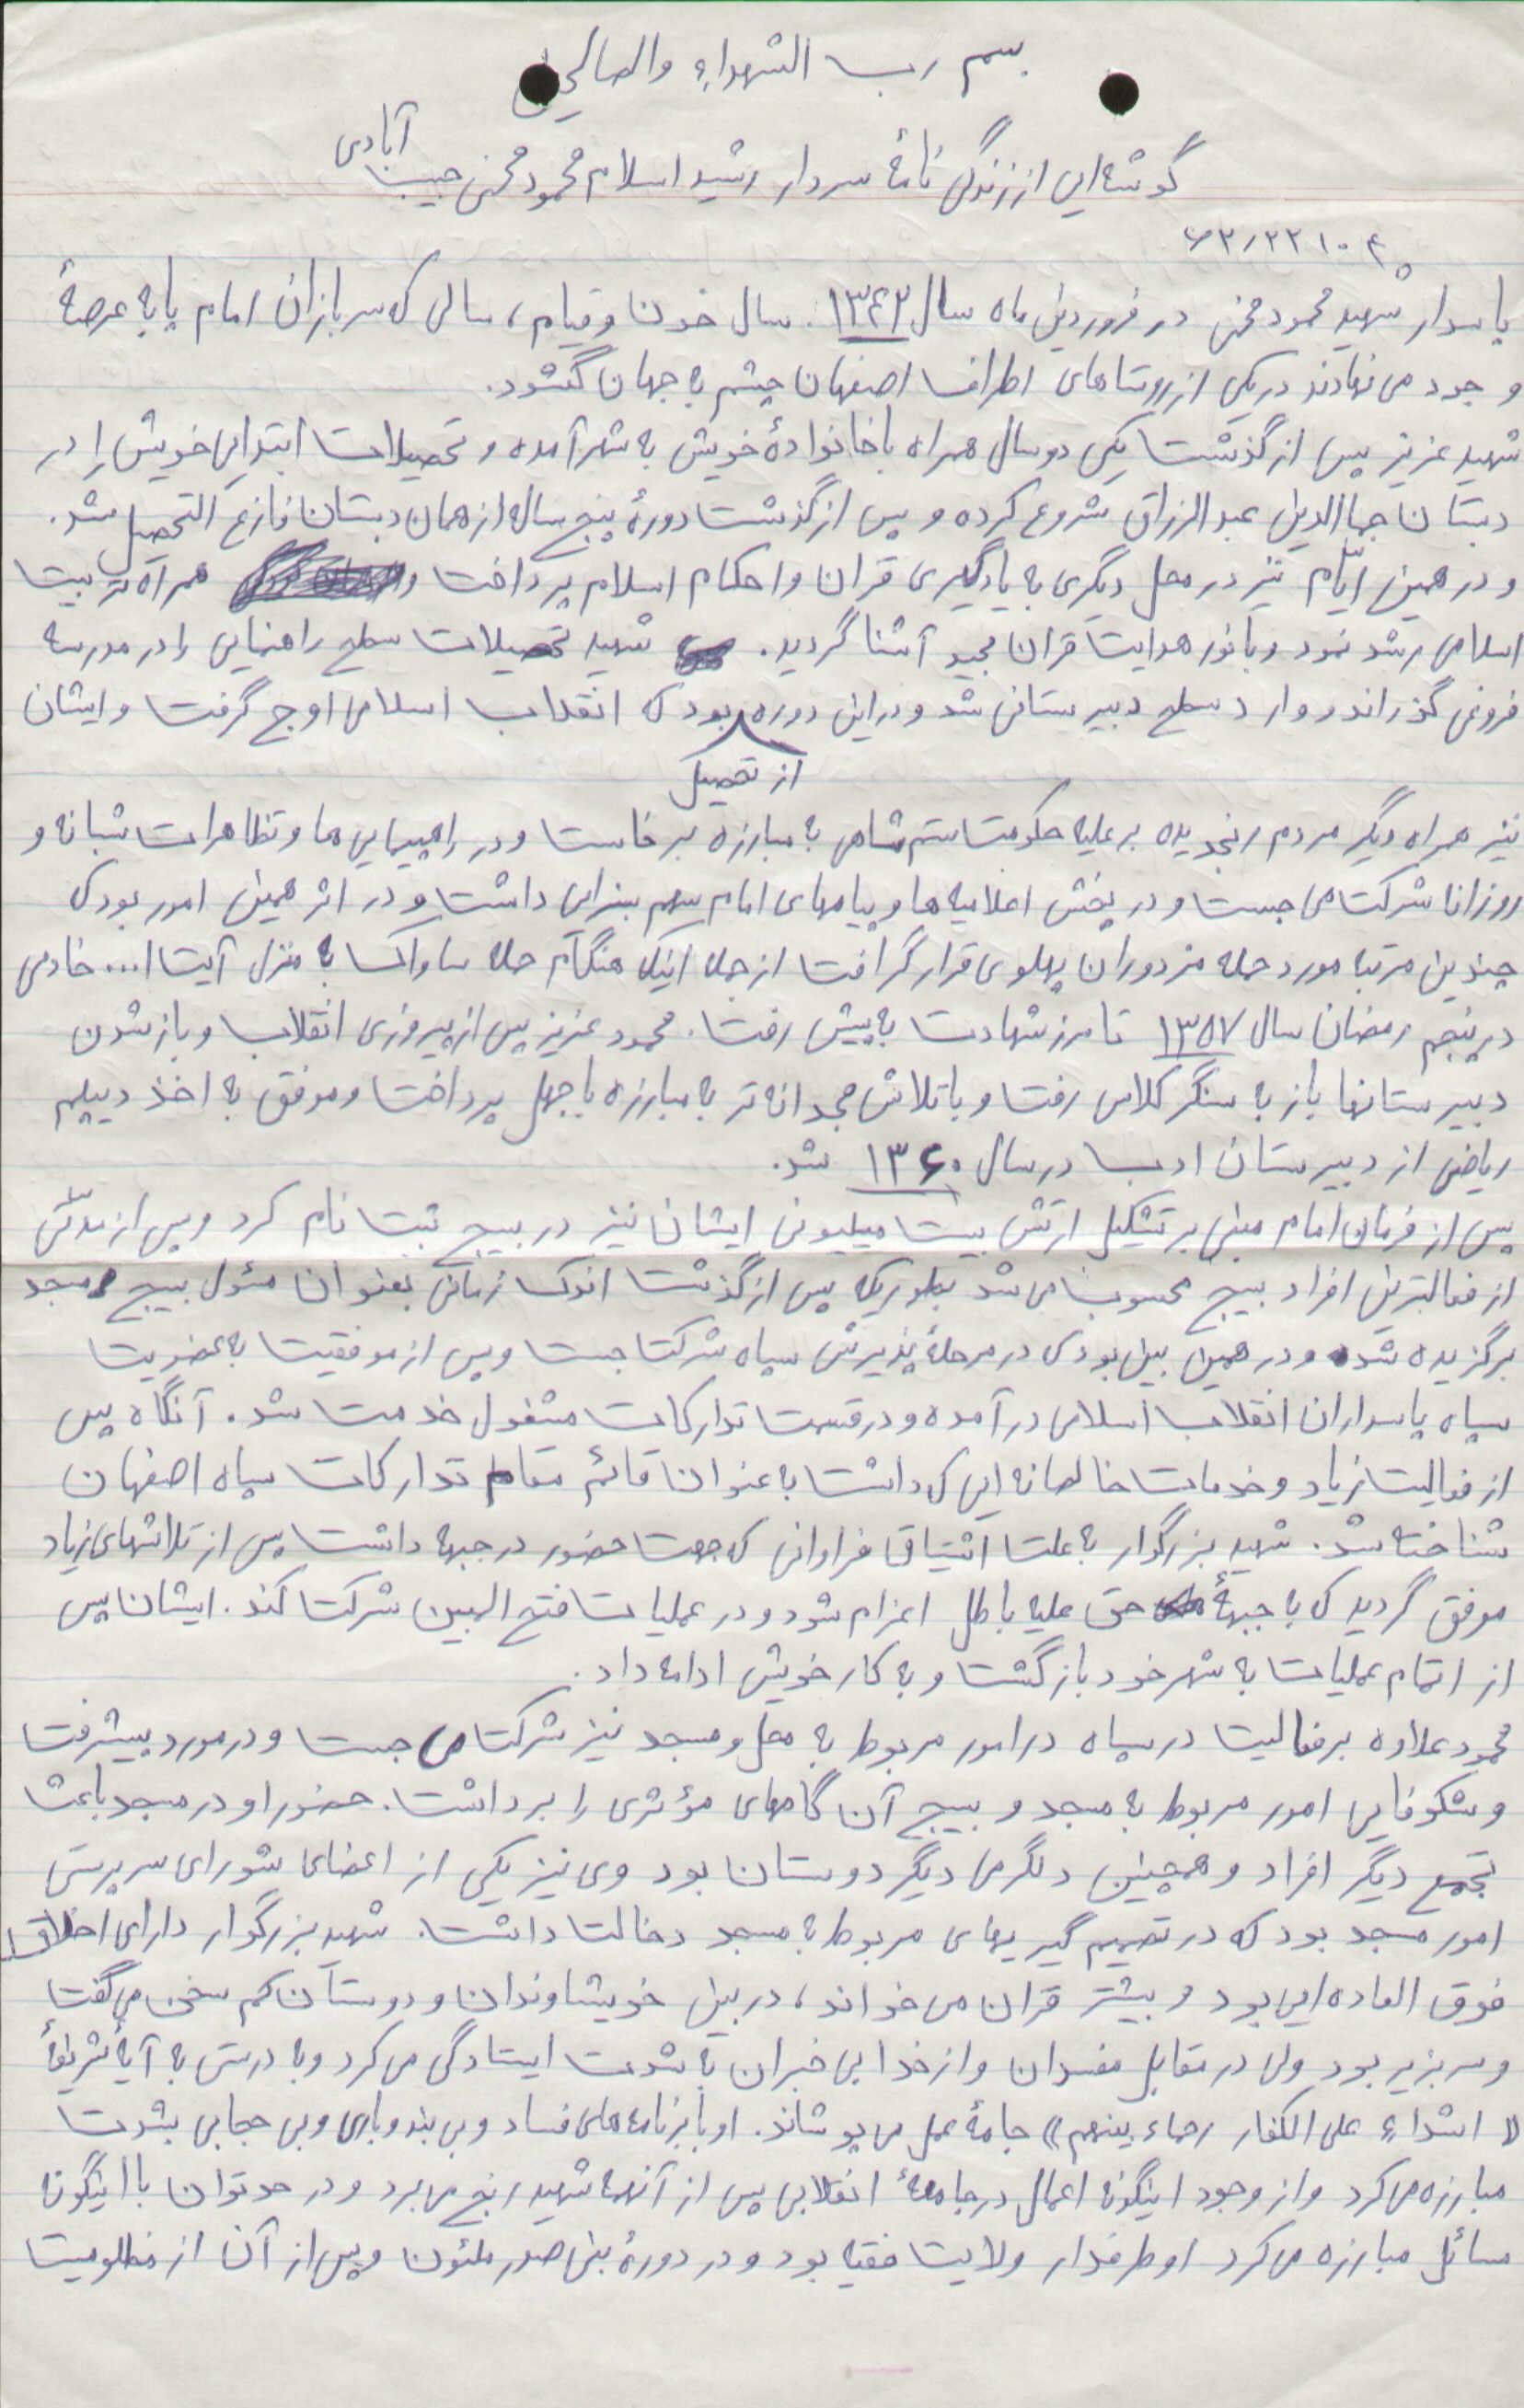 بسم رب الشهداء والصالحین
گوشه‌ایی از زندگی نامهٔ سردار رشید اسلام محمود محمنی حبیب آبادی
۶۳/۲۲۱۰۴
پاسدار شهید محمود در فروردین ماه سال ۱۳۴۲. سال خون و قیام، سالی که سربازان امام پا به عرصهٔ
وجود می نهادند در یکی از روستاهای اطراف اصفهان چشم به جهان گشود.
شهید عزیز پس از گذشت یکی دوسال همراه با خانوادهٔ خویش به شهر آمده و تحصیلات ابتدایی خویش را در
دبستان جماالدین عبدالرزاق شروع کرده و پس از گذشت دورهٔ پنج ساله از همان دبستان فارغ التحصیل شد.
و در همین ایّام نیز در محل دیگری به یادگیری قران و احکام اسلام پرداخت و همراه تربیت
اسلامی رشد نمود و با نور هدایت قران مجید آشنا گردید. شهید تحصیلات سطح راهنمایی را در مدرسه
فروغی گذراند و وارد سطح دبیرستانی شد و در این دوره از تحصیل بود که انقلاب اسلامی اوج گرفت و ایشان
نیز همراه دیگر مردم رنجدیده بر علیه حکومت ستم شاهی به مبارزه برخاست و در راهپیمایی ها و تظاهرات شبانه و
روزانا شرکت می جست و در پخش اعلامیه ها و پیامهای امام سهم بسزایی داشت و در اثر همین امور بود که
چندین مرتبه مورد حمله مزدوران پهلوی قرار گرافت از جمله اینکه هنگام حمله ساواک به منزل آیت ا... خادمی
در پنجم رمضان سال ۱۳۵۷ تا مرز شهادت به پیش رفت. محمود عزیز پس از پیروزی انقلاب و باز شدن
دبیرستانها باز به سنگر کلاس رفت و با تلاش مجدانه تر به مبارزه با جهل پرداخت و موفق به اخذ دیپلم
ریاضی از دبیرستان ادب در سال ۱۳۶۰ شد.
پس از فرمان امام مبنی بر تشکیل ارتش بیست میلیونی ایشان نیز در بسیج ثبت نام کرد و پس از مدتی
از فعالترین افراد بسیج محسوب می شد بطوریکه پس از گذشت اندک زمانی بعنوان مسئول بسیج مسجد
برگزیده شد و در همین بین بود که در مرحلهٔ پذیرش سپاه شرکت جست و پس از موفقیت به عضویت
سپاه پاسداران انقلاب اسلامی در آمده و در قسمت تدارکات مشغول خدمت شد. آنگاه پس
از فعالیت زیاد و خدمات خالصانه ایی که داشت به عنوان قائم مقام تدارکات سپاه اصفهان
شناخته شد. شهید بزرگوار به علت اشتیاق فراوانی که جهت حضور در جبهه داشت پس از تلاشهای زیاد
موفق گردید که به جبههٔ حق علیه باطل اعزام شود و در عملیات فتح المبین شرکت کند. ایشان پس
از اتمام عملیات به شهر خود بازگشت و به کار خویش ادامه داد.
محمود علاوه بر فعالیت در سپاه در امور مربوط به محل و مسجد نیز شرکت می جست و در مورد پیشرفت
و شکوفایی امور مربوط به مسجد و بسیج آن گامهای مؤثری را برداشت. حضور او در مسجد باعث
تجمع دیگر افراد و همچنین دلگرمی دیگر دوستان بود وی نیز یکی از اعضای شورای سرپرستی
امور مسجد بود که در تصمیم گیریهای مربوط به مسجد دخالت داشت. شهید بزرگوار دارای اخلاق
فوق العاده ایی بود و بیشتر قران می خواند، در بین خویشاوندان و دوستان کم سخن می گفت
و سر بزیر بود ولی در مقابل مفسدان و از خدا بی خبران به شدت ایستادگی می کرد و به درستی به آیهٔ شریفهٔ
« اشداء علی الکفار رحماء بینهم» جامهٔ عمل می پوشاند. او با برنامه های فساد و بی بندوباری و بی حجابی بشدت
مبارزه می کرد و از وجود اینگونه اعمال در جامعهٔ انقلابی پس از آنهمه شهید رنج می برد و در حد توان با اینگونه
مسائل مبارزه می کرد او طرفدار ولایت فقیه بود و در دورهٔ بنی صدر ملئون و پس از آن از مظلومیت